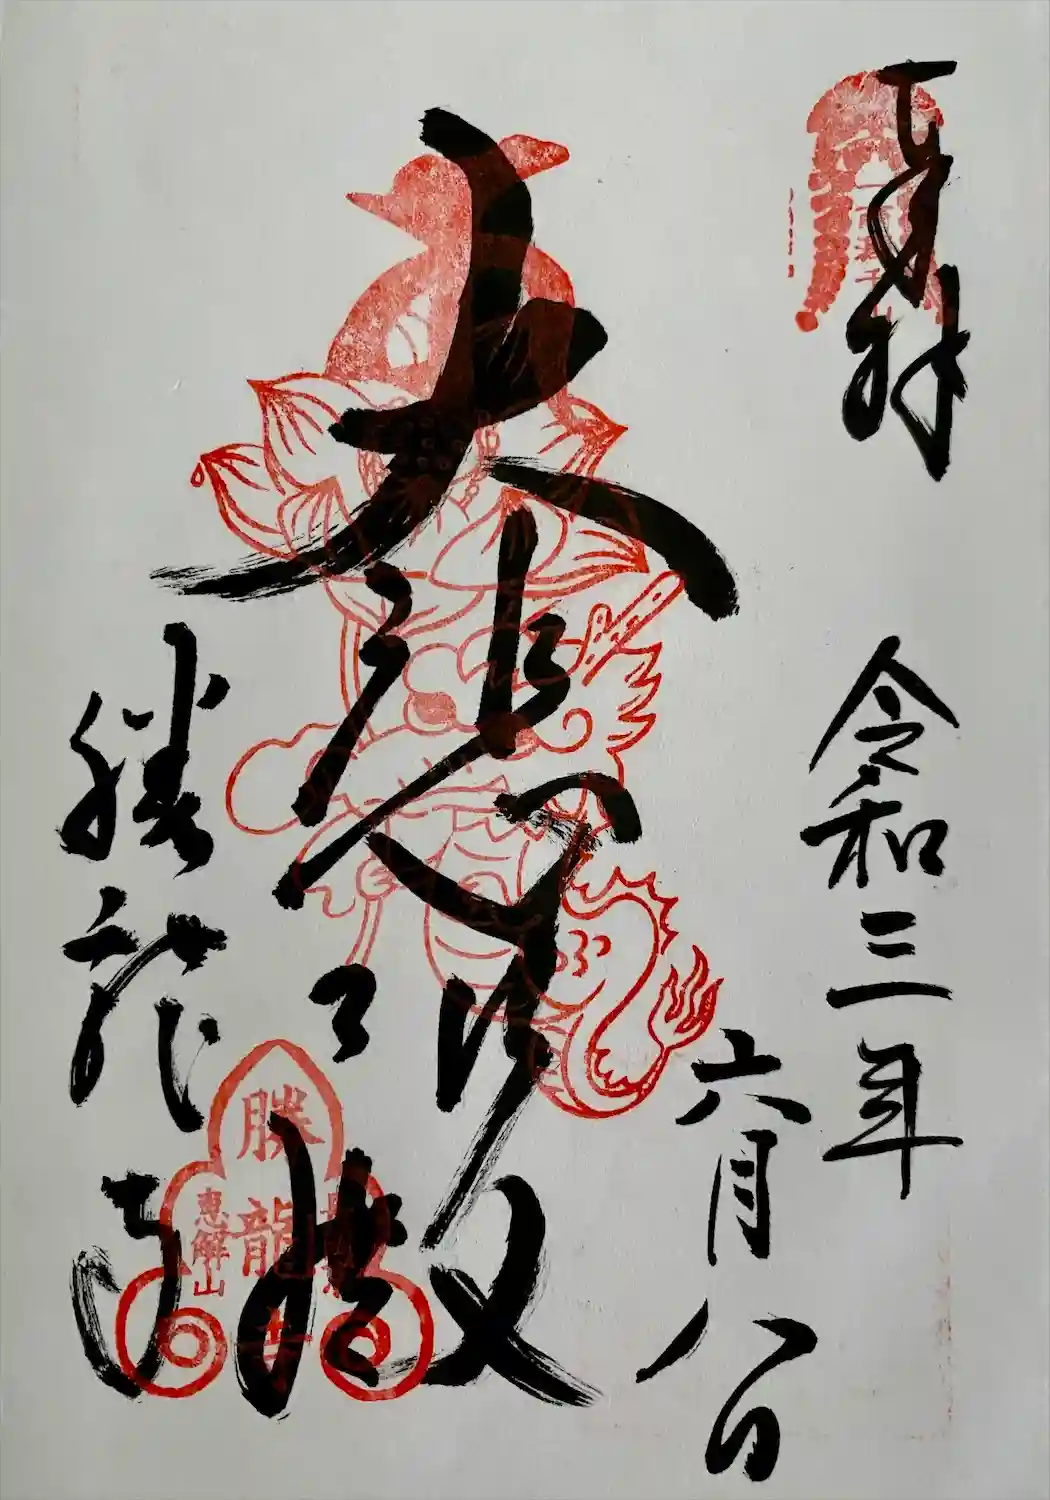 奉拝
令和三年
六月八日
大悲殿
勝龍寺
勝龍寺
惠解山